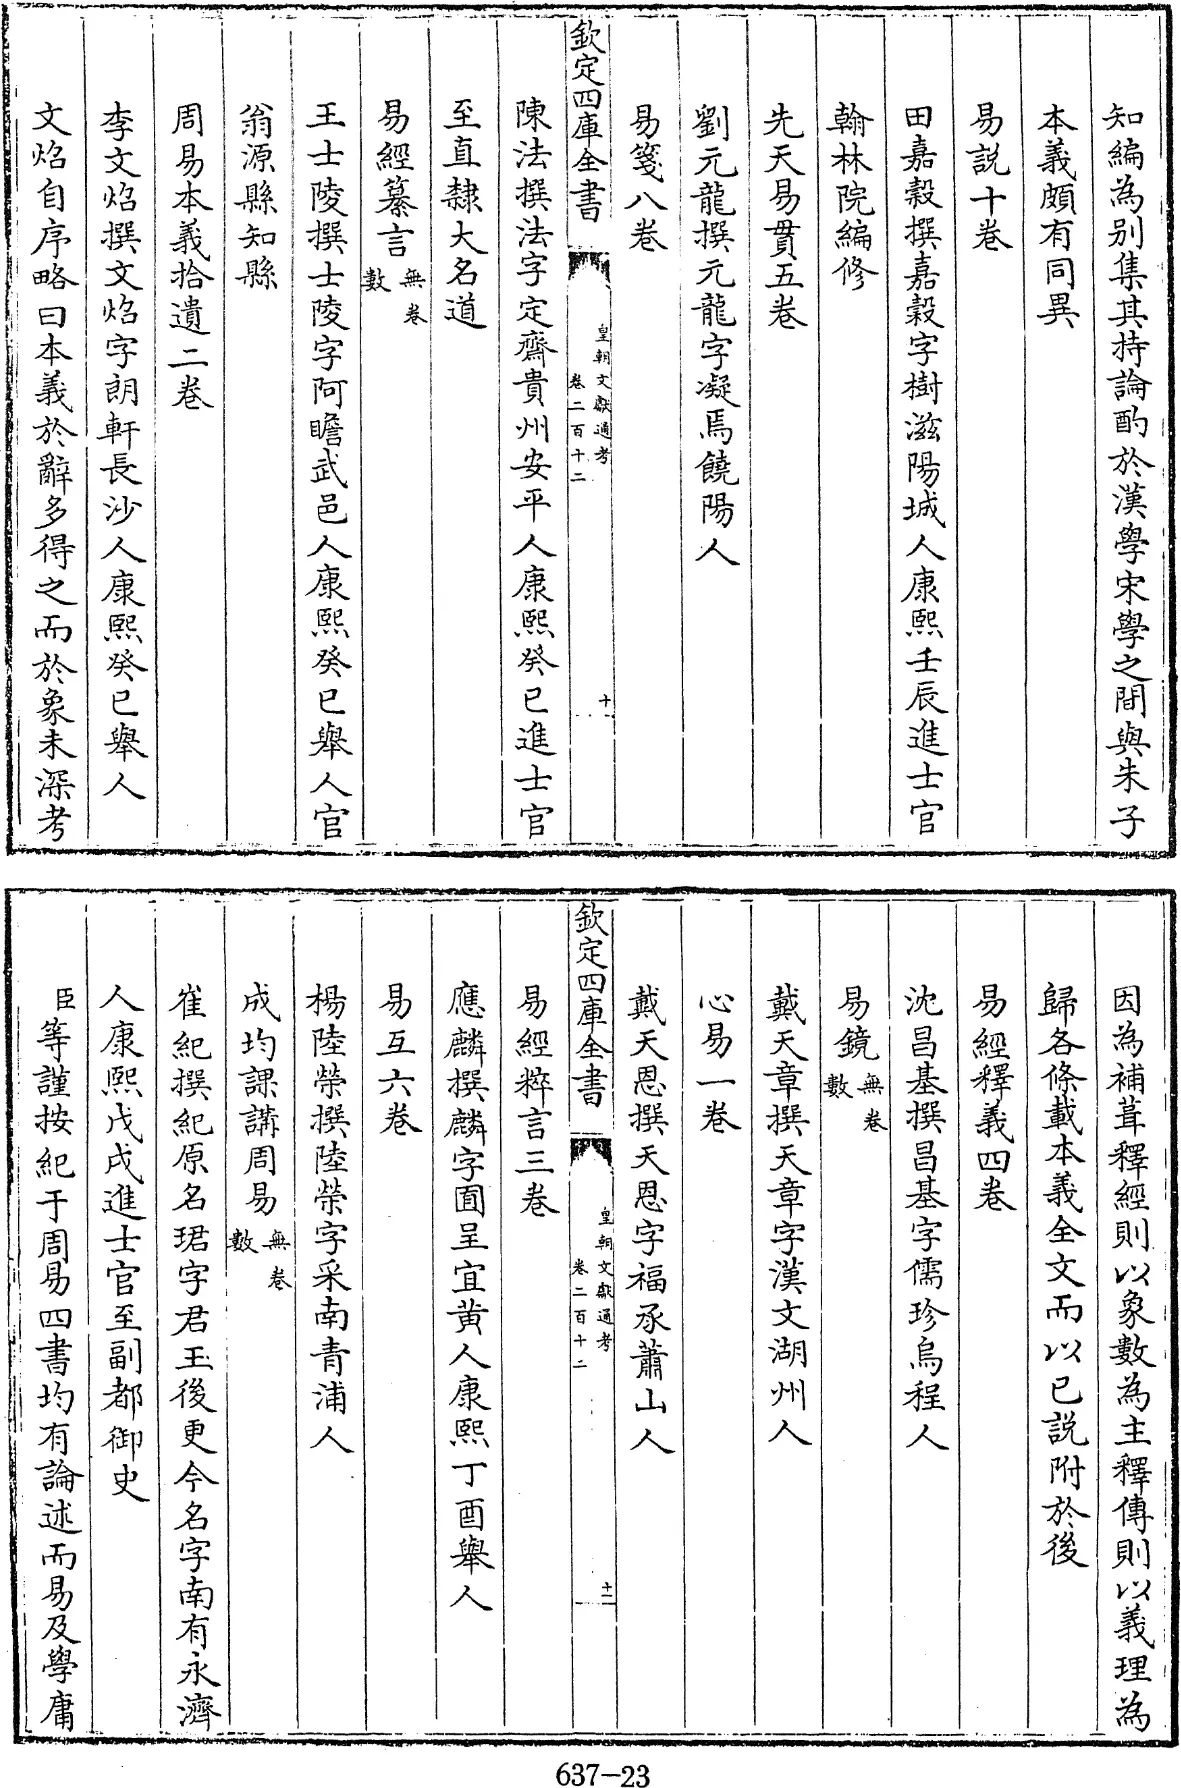 知編為別集其持論酌於漢學宋學之間與朱子
本義頗有同異
易説十卷
田嘉穀撰嘉穀字樹滋陽城人康熙壬辰進士官
翰林院編修
先天易貫五卷
劉元龍撰元龍字凝焉饒陽人
易箋八卷
欽定四庫全書
皇朝文獻通考
卷二百十二
十
陳法撰法字定齋貴州安平人康熙癸巳進士官
至直隸大名道
易經纂言無卷數
王士陵撰士陵字阿瞻武邑人康熙癸巳舉人官
翁源縣知縣
周易本義拾遺二卷
李文炤撰文炤字朗軒長沙人康熙癸巳舉人
文炤自序略曰本義於辭多得之而於象未深考
因為補葺釋經則以象數為主釋傳則以義理為
歸各條載本義全文而以已説附於後
易經釋義四卷
沈昌基撰昌基字儒珍烏程人
易鏡無卷數
戴天章撰天章字漢文湖州人
心易一卷
戴天恩撰天恩字福承蕭山人
欽定四庫全書
皇朝文獻通考
卷二百十二
十一
易經粹言三卷
應麟撰麟字囿呈宜黄人康熙丁酉舉人
易互六卷
楊陸榮撰陸榮字采南青浦人
成均課講周易無卷數
崔紀撰紀原名珺字君玉後更今名字南有永濟
人康熙戊戌進士官至副都御史
臣等謹按紀于周易四書均有論述而易及學庸
637-23